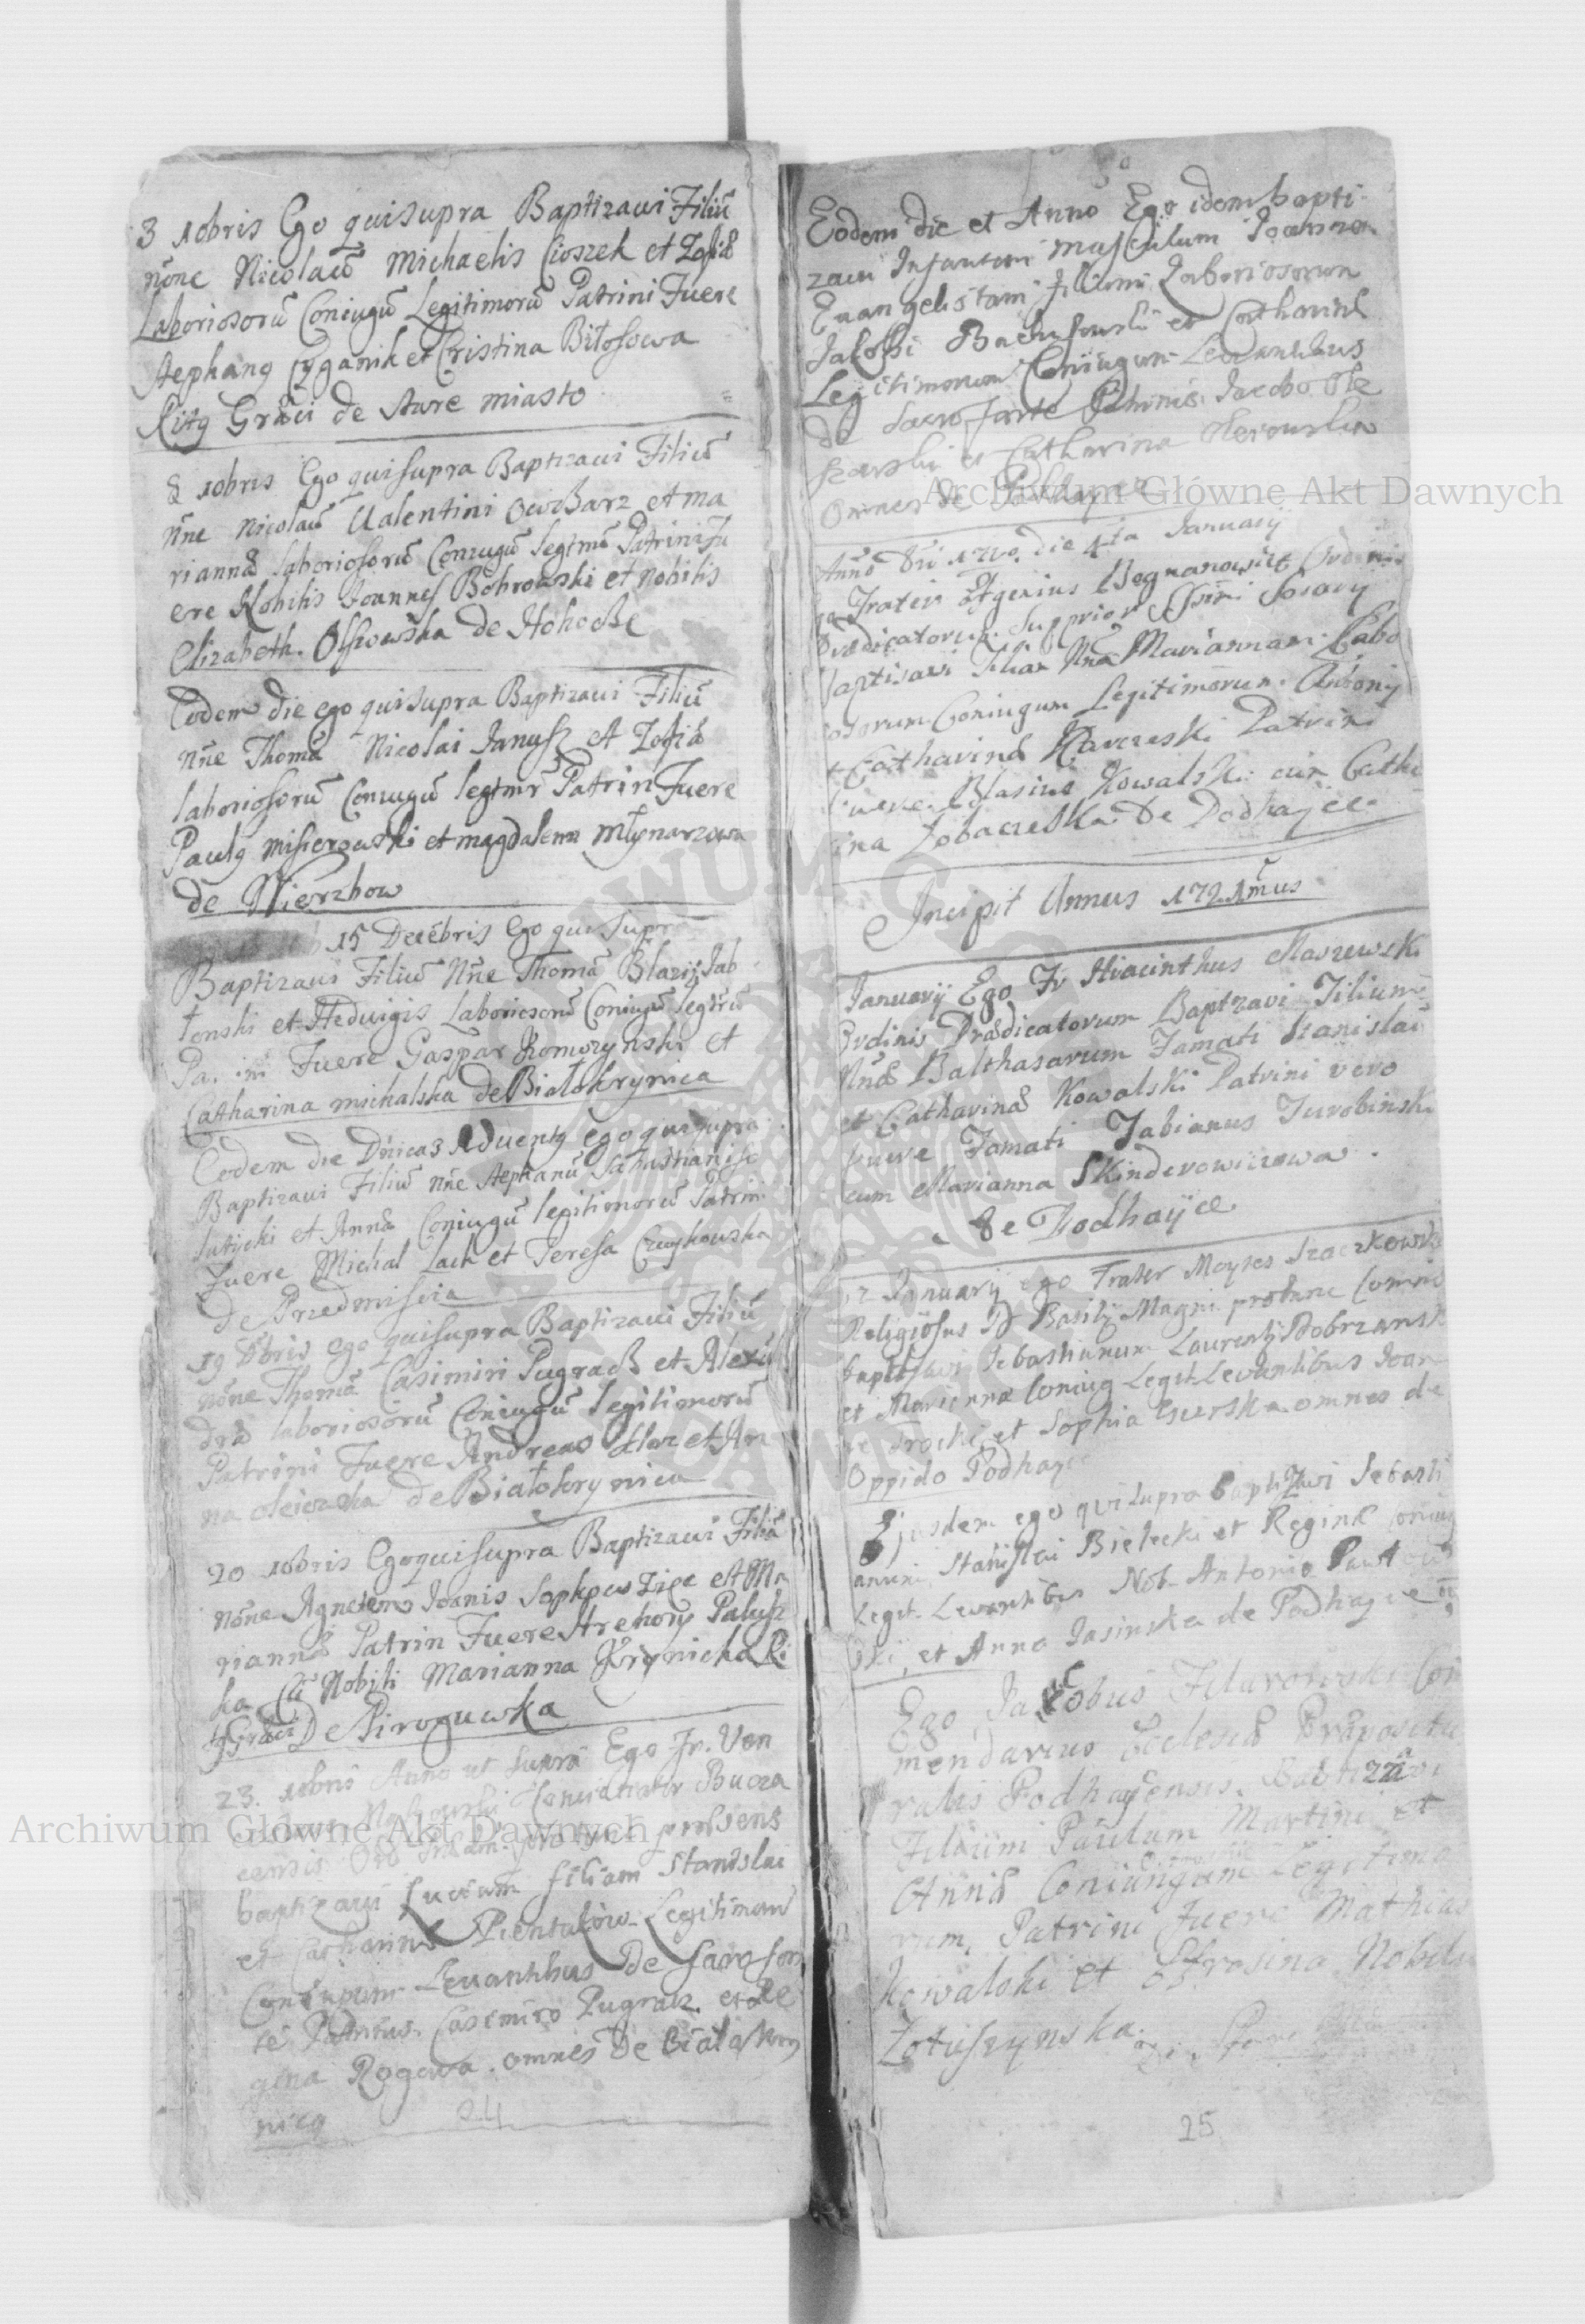 3 10bris Ego qui supra Baptizavi Filiū
nōne Nicolaū Michaelis Cioszek et Zofiæ
Laboriosorū Coniugū Legitimorū Patrini Fuere
Stephanꝯ Cyganik et Cristina Bitosowa
Ritꝯ Græci de Stare miasto
8 10bris Ego qui supra Baptizavi Filiū
nñe Nicolaū Valentini Owcharz et Ma
riannæ laboriosorū Coniugū legtmū Patrini Fu
ere Nobilis Joannes Bobrowski et Nobilis
Elizabeth. de
Eodem die ego qui supra Baptizavi Filiū
nñe Thomā Nicolai Janusz et Zofiæ
laboriosorū Coniugū legtmr̄ Patrin Fuere
Paulꝯ et magdalena młynarzowa
de Wierzbow
15 Decēbris Ego qui supra
Baptizavi Filiū Nñe Thomā Blazij Jab
łonski et Hedvigis Laboriosorū Coniugū
Fuere Gaspar Komozynski et
Catharina michalska de Białokrynica
Eodem die Dnīcas Aduentꝯ ego qui supra
Baptizavi Filiū nñe Stephanū
et Annæ Coniugū legitimorū Patrini
Fuere Michal Lach et Teresa
de Przedmiscia
19 Xbris ego qui supra Baptizavi Filiū
nōne Thomā Casimiri Pugracz et Alexā
dræ laboriosorū Coniugū legitimorū
Patrini Fuere Andreas et An
na de Białokrynica
20 10bris Ego qui supra Baptizavi Filiā
nōne Agnetem Joanis et Ma
riannæ Patrin Fuere Hrehory Palusz
ka Cū Nobili Marianna Krynicka Ri
tꝯ Græci De Piroguwka
23. 10bris Anno ut supra Ego Fr. Ven
Concionator Bucza
censis Ord præsens
baptizavi Luciam filiam Stanislai
et Catharinæ Pientaków Legitimorū
Coniugum Levantibus De sacro fon
te Patrinis. Casimiro Pugracz. et Re
gina Rogowa. omnes De Białokry
nica
24
Eodem die et Anno Ego idem bapti
zavi Infantem masculum Joannem
Evangelistam filium Laboriosorum
Jakobi et Catharinæ
Legitimorum Coniugum Levantibus
de sacro fonte Patrinis. Jacobo Ole
szarski et Catharina
omnes de Podhayce
Anno Dni 1720. die 4ta Januarij
Frater Ordinis
Prædicatorum. Supprior Ssmi Rosarij
baptisavi filiam Nnæ Mariannam. Labo
iosorum Coniugum Legitimorum. Antonij
et Catharinæ Karczeski Patrini
Fuere. Blasius Kowalski cum Catha
ina Zobaczeska De Podhajce.
Incipit Annus 1721mus
Januarij Ego Fr Hiacinthus Maszewski
Ordinis Prædicatorum Baptzavi Filium
Nnæ Balthasarum Famati Stanislai
et Catharinæ Kowalski Patrini vero
Fuere Famati Fabianus Turobinski
cum Marianna Skinderowiczowa.
de Podhayce
12 Januarij ego Frater Moyses
Religiosus D Basilij Magni
baptisavi Sebastianum Laurentij Dobrzansk
et Marianna Coniug Legit. Levantibus Joan
ne et Sophia omnes de
Oppido Podhayce
Ejusdem ego qui supra baptizavi Sebasti
anum Stanislai Bielecki et Reginæ Coniug
Legit. Levantibus Nob. Antonio
ski, et Anna Jasinska de Podhayce
Ego Jacobus Com
mendarius Ecclesiæ Præposetu
ralis Podhayensis. Babtizavi
Filium Paulum Martini et
Annæ Coniungum Legitimo
rum, Patrini Fuere Mathias
Kowalski et Nobilis
de Stare
25
Archiwum Główne Akt Dawnych
Archiwum Główne Akt Dawnych